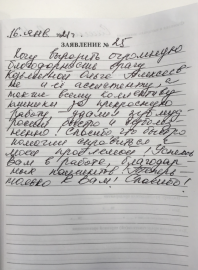 16 янв 21г.
ЗАЯВЛЕНИЕ № 25
Хочу выразить огромную
благодарность врачу
Ольге Алексеев-
не и её ассистенту, а
также всему коллективу
клиники за прекрасную
работу, удалили зуб муд-
рости быстро и
Спасибо, что быстро
помогли справиться с
моей проблемой! Успехов
Вам в работе, благодар-
ных пациентов! Теперь
только к Вам! Спасибо!